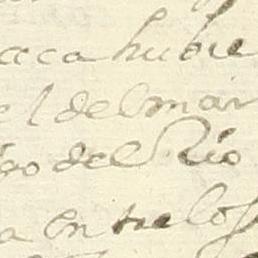 aca hubie
el del mar
go del Rio
a entre los